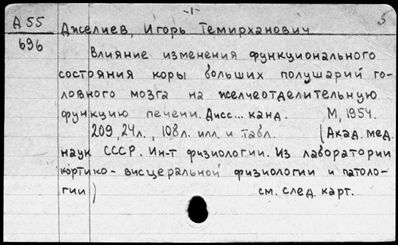 -1-
5
А55 Джелиев, Игорь Темирханович
696
Влияние изменения функционального
состояния коры больших полушарий го-
ловного мозга на желчеотделительную
функцию печени. Дисс... канд. М, 1954.
209, 24л., 108л. илл. и табл. (Акад. мед.
наук СССР. Ин-т физиологии. Из лаборатории
кортико-висцеральной физиологии и патоло-
гии) см. след. карт.